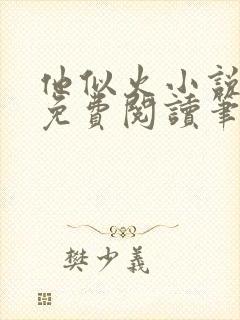 他似火小説
免費閱讀筆
樊少義